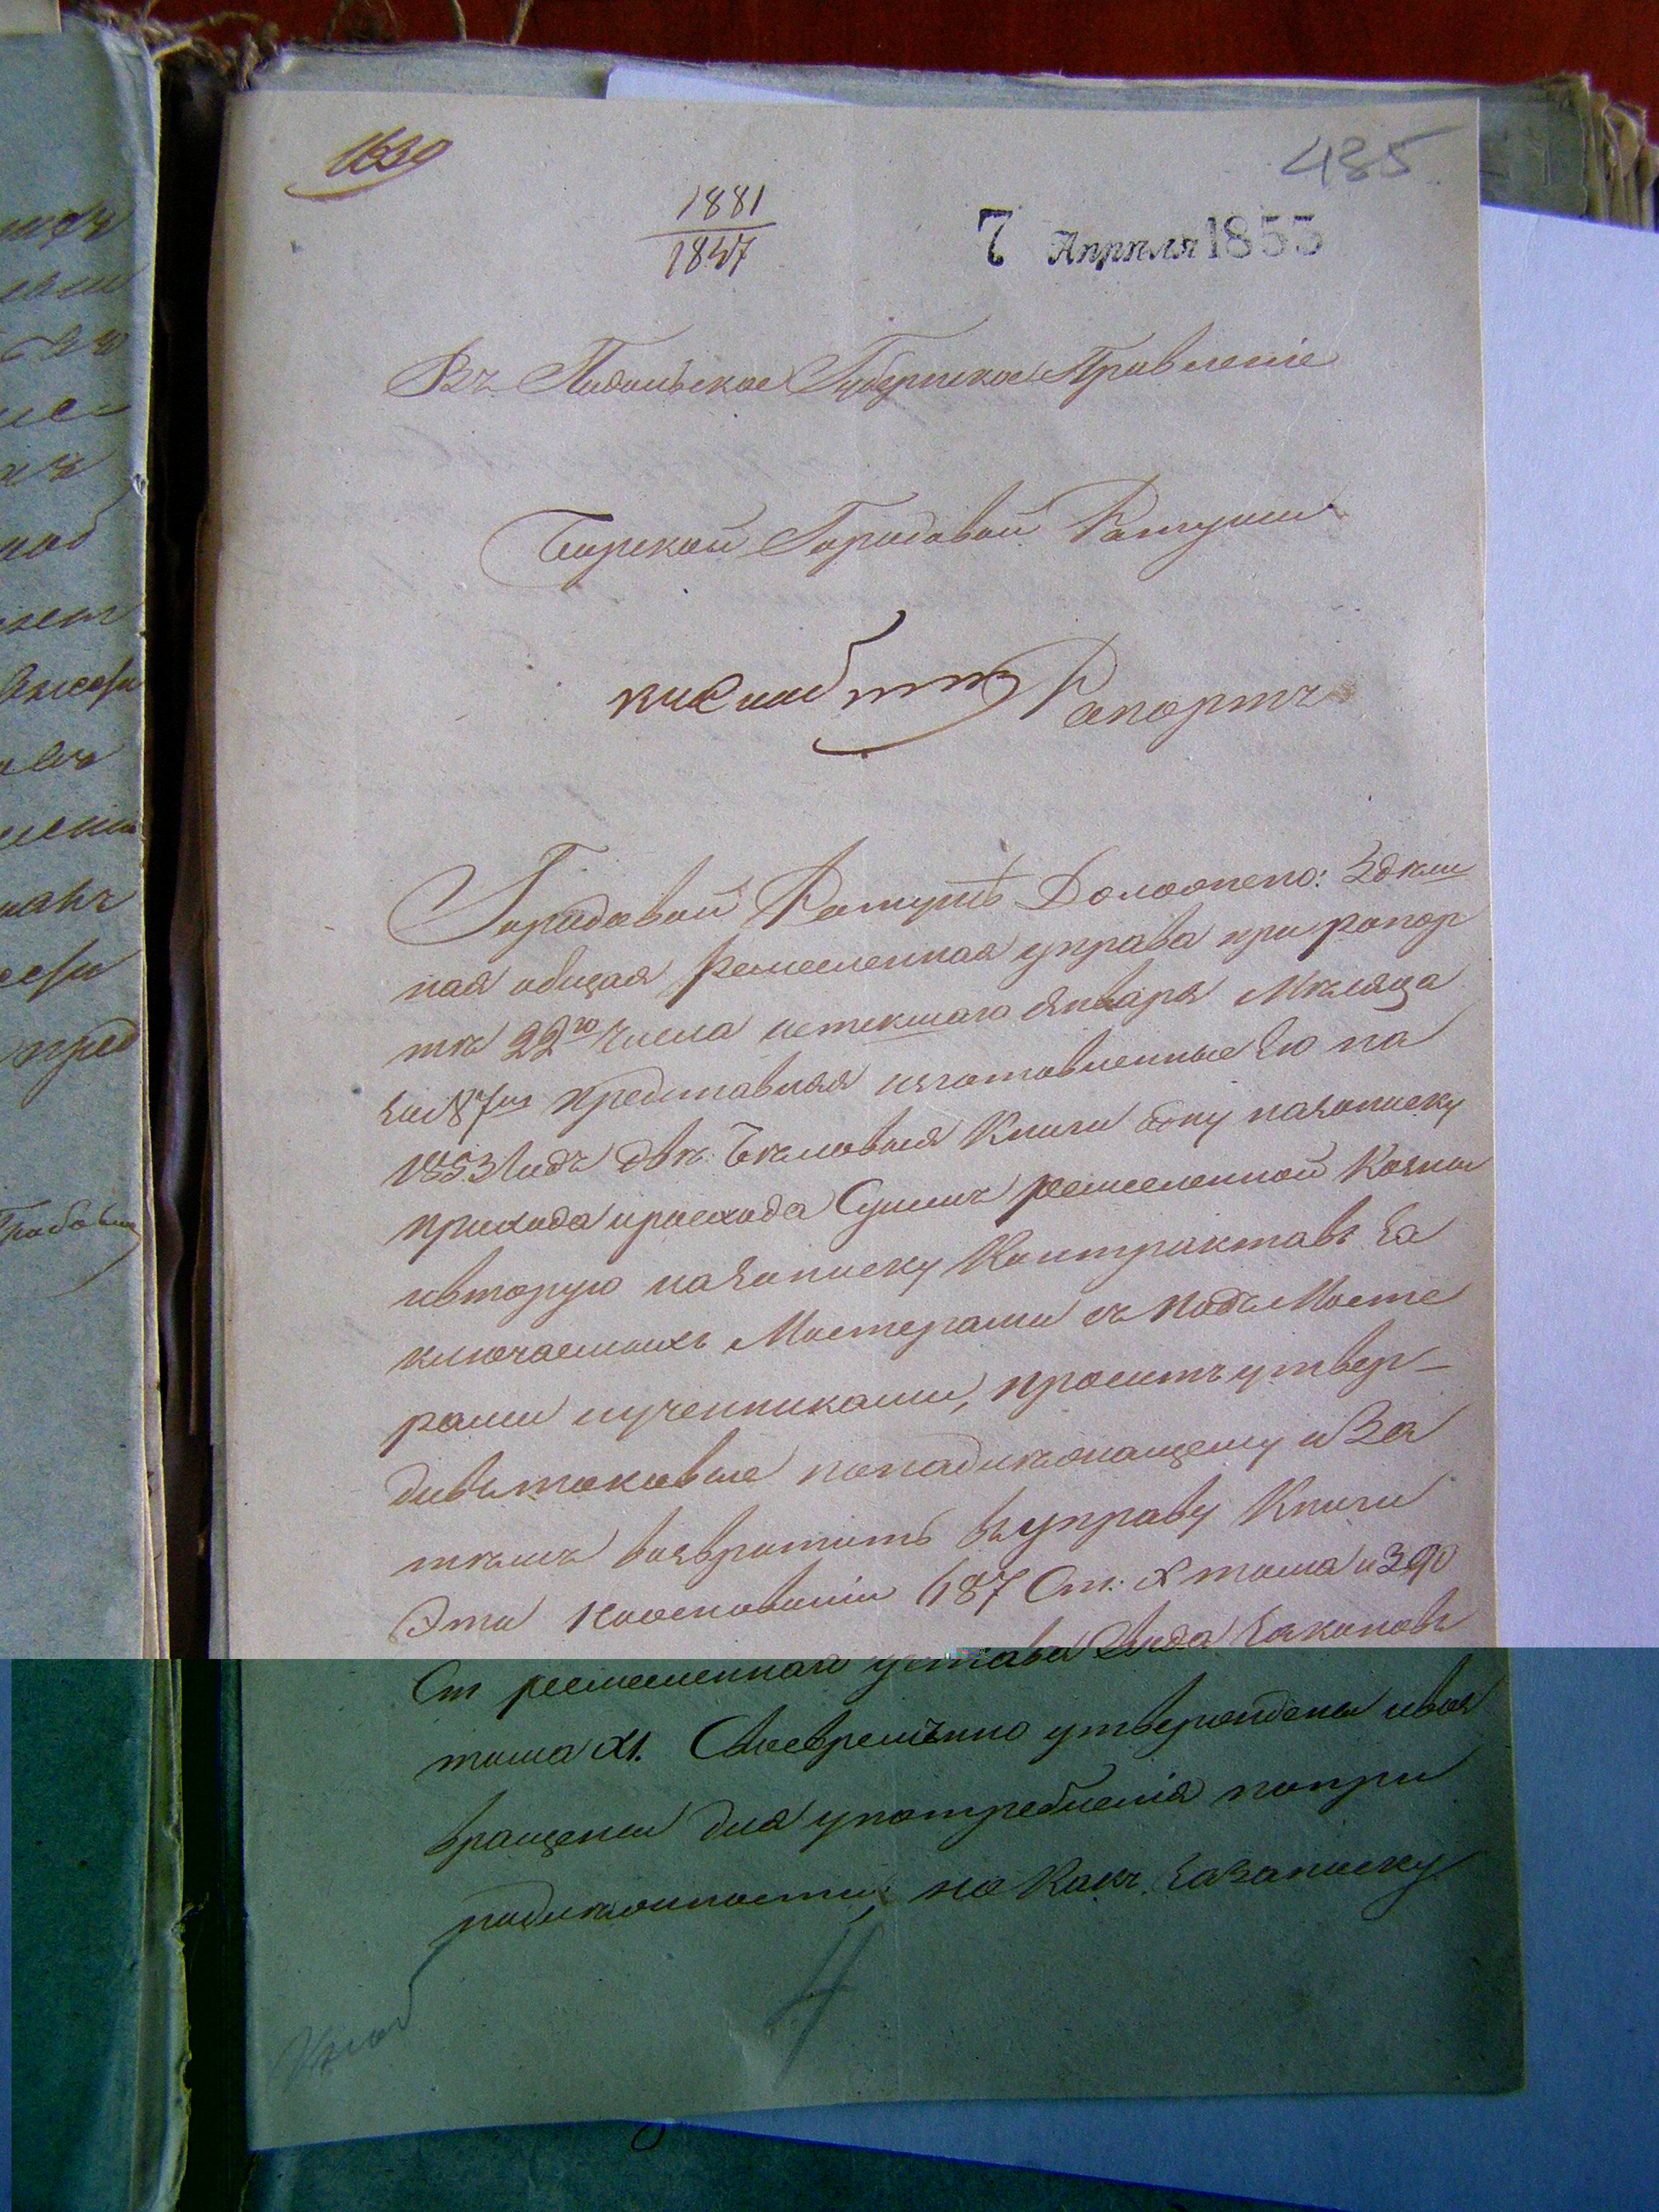 1639
485
1881
1847
7 Апрѣля 1853
Въ Подольское Губернское Правленіе
Барской Городовой Ратуши
Рапортъ
Городовой Ратушѣ Доложено: Здѣш
ная общая ремесленная управа при рапор
тѣ 22го Числа истекшаго Января Мѣсяца
за № 87м представляя изготовленные Ею на
1853 Годъ двѣ Бѣловыя Книги Одну на записку
прихода и расхода Суммъ ремесленной Казны
и вторую на записку Контрактовъ За
ключаемыхъ Мастерами съ подъ Масте
рами и учениками, проситъ утвер-
дивъ таковые по надлежащему и За
тѣмъ возвратить въ управу Книги
Эти На основаніи 187 Ст: X тома и 390
Ст ремесленнаго устава Свода Законовъ
тома XI. Своевременно утверждены и воз
вращены для употребленія по при
надлежности; но Какъ За Записку